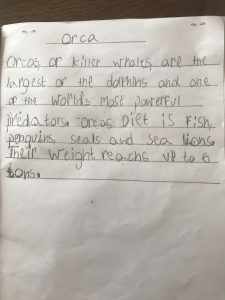 orca
Orcas, or killer whales, are the
largest of the dolphins and one
of the world's most powerful
predators. orcas Diet is Fish,
penguins, seals and sea lions.
Their weight reachs up to 6
tons.